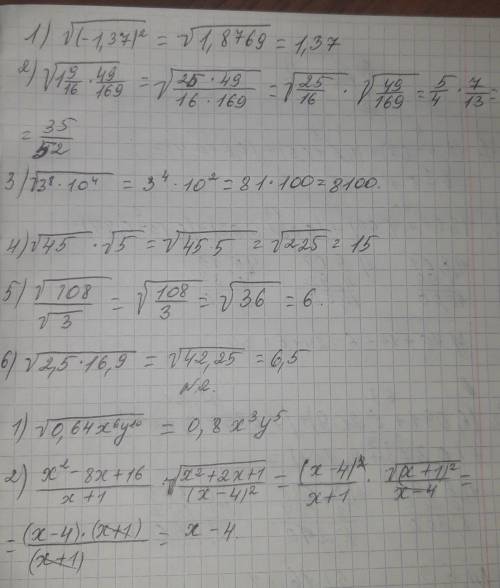 1) √(-1,37)² = √1,8769 = 1,37
2) √1 9/16 · 49/169 = √(25 · 49)/(16 · 169) = √25/16 · √49/169 = 5/4 · 7/13 =
= 35/52
3) √3⁸ · 10⁴ = 3⁴ · 10² = 81 · 100 = 8100.
4) √45 · √5 = √45 5 = √225 = 15
5) √108/√3 = √108/3 = √36 = 6.
6) √2,5 · 16,9 = √42,25 = 6,5
№2.
1) √0,64x⁶y¹⁰ = 0,8x³y⁵
2) (x² - 8x + 16)/(x + 1) · √(x² + 2x + 1)/(x - 4)² = (x - 4)²/(x + 1) · √(x + 1)²/(x - 4) =
= (x - 4) · (x + 1)/(x + 1) = x - 4.